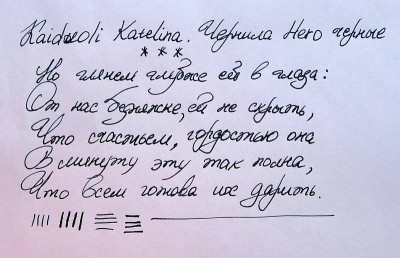 Raidooli Katelina. Чернила Hero черные
* * *
Но глянем глубже ей в глаза:
От нас бедняжке, ей не скрыть,
Что счастьем, гордостью она
В минуту эту так полна,
Что всем готова их дарить.